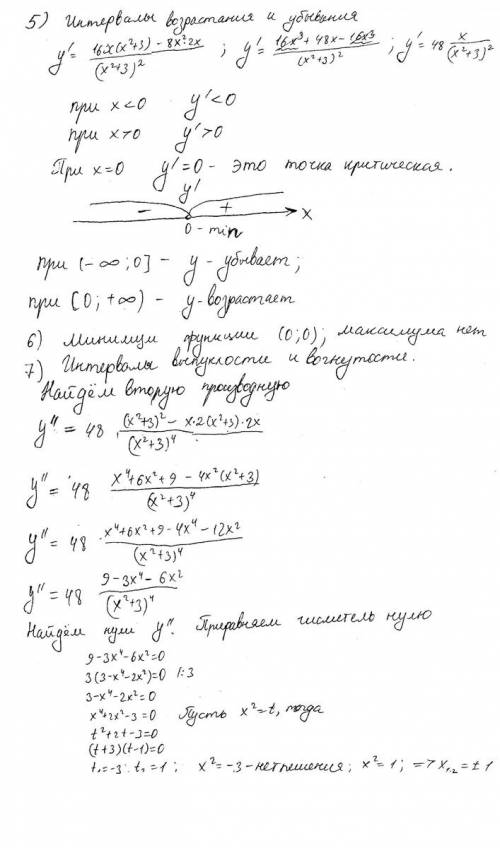 5) Интервалы возрастания и убывания
y' = (16x(x²+3) - 8x²·2x)/(x²+3)² ; y' = (16x³ + 48x - 16x³)/(x²+3)² ; y' = 48 x/(x²+3)²
при x<0 y'<0
при x>0 y'>0
При x=0 y'=0 - это точка критическая.
y'
- + x
0 - min
при (-∞;0] - y - убывает;
при [0;+∞) - y - возрастает
6) Минимум функции (0;0); максимума нет
7) Интервалы выпуклости и вогнутости.
Найдём вторую производную
y'' = 48 ((x²+3)² - x·2(x²+3)·2x)/(x²+3)⁴
y'' = 48 (x⁴+6x²+9 - 4x²(x²+3))/(x²+3)⁴
y'' = 48 · (x⁴+6x²+9-4x⁴-12x²)/(x²+3)⁴
y'' = 48 (9-3x⁴-6x²)/(x²+3)⁴
Найдём нули y''. Приравняем числитель нулю
9-3x⁴-6x²=0
3(3-x⁴-2x²)=0 /:3
3-x⁴-2x²=0
x⁴+2x²-3=0 Пусть x²=t, тогда
t²+2t-3=0
(t+3)(t-1)=0
t₁=-3; t₂=1; x²=-3 - нет решения; x²=1; => x₁,₂=±1